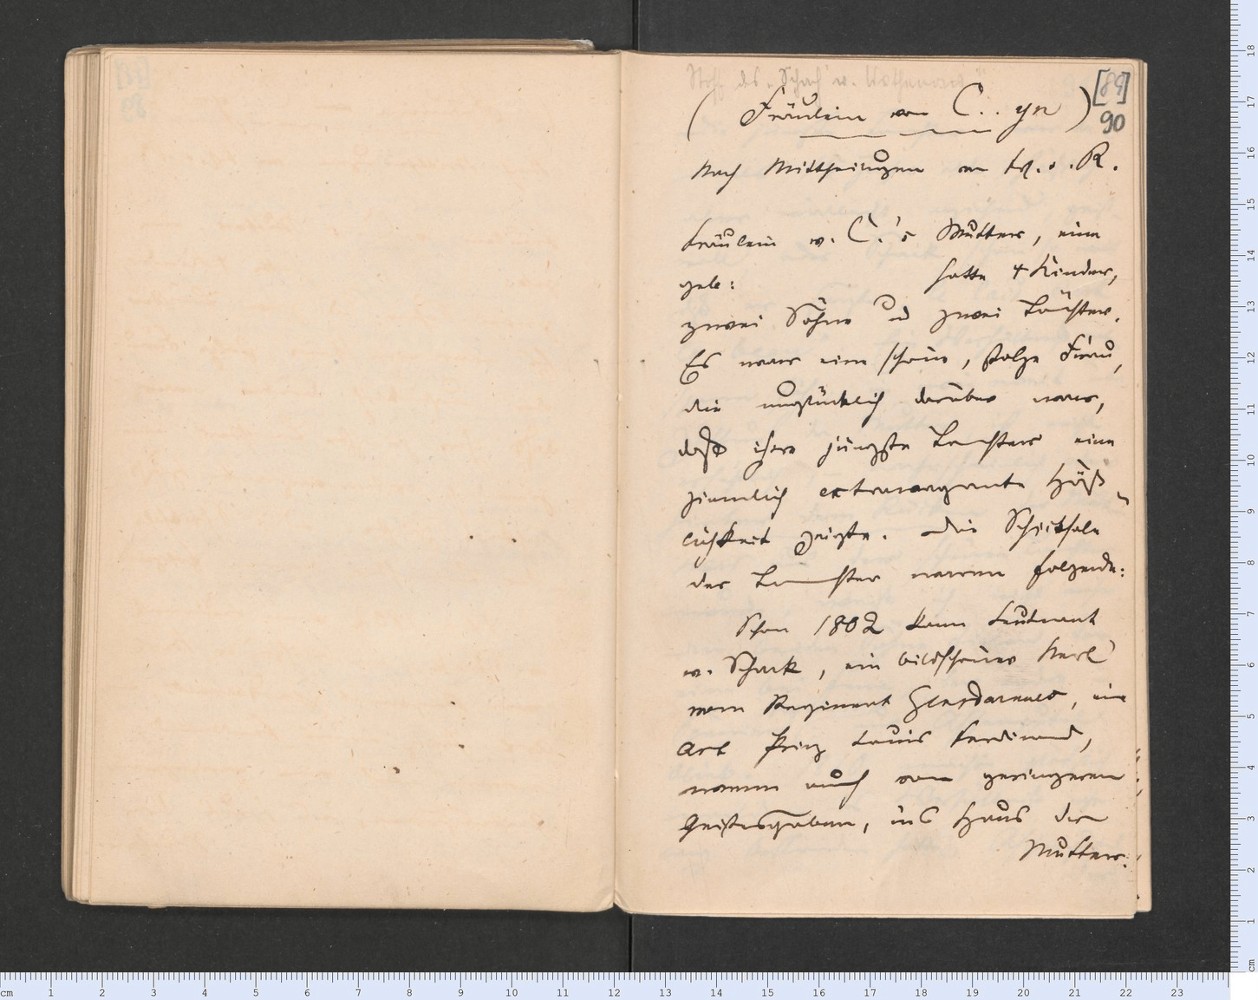 Stoff des „Schach v. Wuthenow"
[89]
90
(Fräulein von C..yn)
Nach Mittheilungen von Frl. v. R.
Fräulein v. C.'s Mutter, eine
geb: hatte 4 Kinder,
zwei Söhne und zwei Töchter.
Es war eine schöne, stolze Frau,
die unglücklich darüber war,
daß ihre jüngste Tochter eine
ziemlich extravagante Häß-
lichkeit zeigte. Die Schicksale
der Tochter waren folgende:
Schon 1802 kam Leutnant
v. Schack, ein bildschöner Kerl
vom Regiment Gensdarmes, eine
Art Prinz Louis Ferdinand,
wenn auch von geringeren
Geistesgaben, ins Haus der
Mutter.